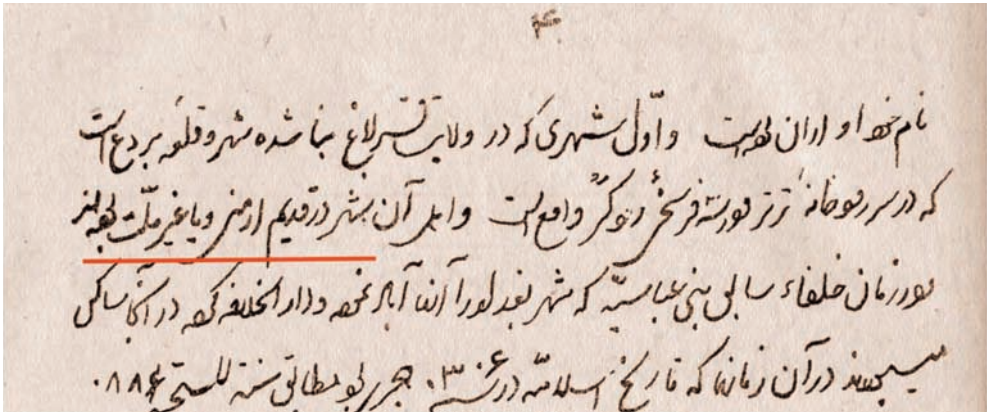 نام خود او اران بوده است و اوّل شهری که در ولایت قراباغ بنا شده شهر و قلعه بردع است
که در سر رودخانهٔ ترتر و در سه فرسخی رود کُر واقع است و اهل آن شهر در قدیم ارمنی و یا غیر ملّت بودند
و در زمان خلفاء سابق بنی عباسیّه که شهر بغداد را آنها آباد نموده و دار الخلافه کرده در آنجا ساکن
میبودند در آن زمانها که تاریخ اسلامیّه در هجری بود مطابق سنه